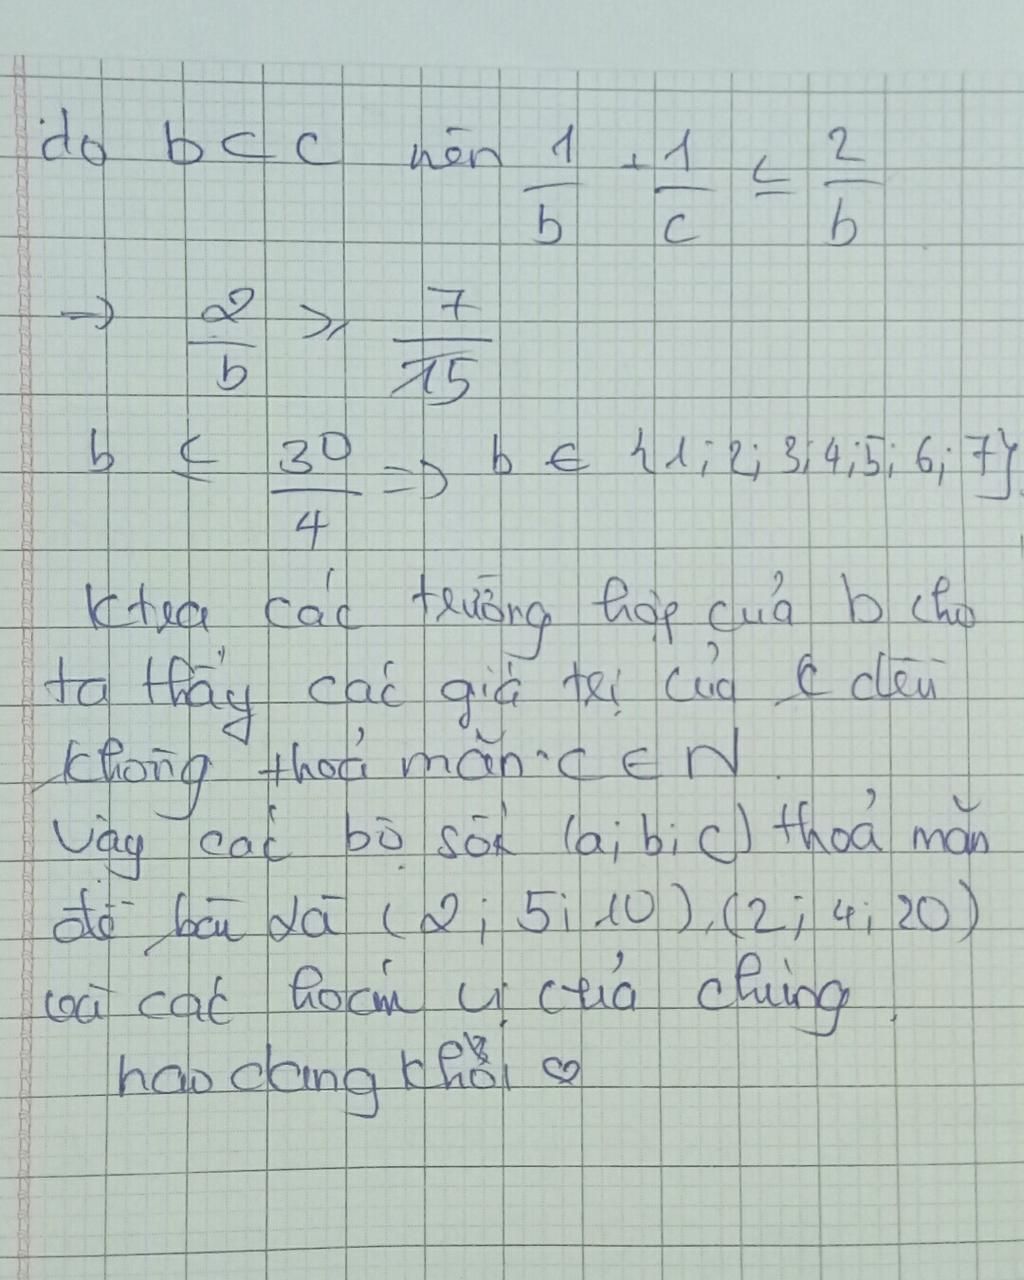 do b < c nên 1/b + 1/c ≤ 2/b
→ 2/b ≥ 7/15
b ≤ 30/4 => b ∈ {1; 2; 3; 4; 5; 6; 7}
Ktra các trường hợp của b cho
ta thấy các giá trị của c đều
không thoả mãn c ∈ N.
Vậy các bộ số (a; b; c) thoả mãn
đề bài là (2; 5; 10), (2; 4; 20)
và các hoán vị của chúng.
hao dang khôi ♡